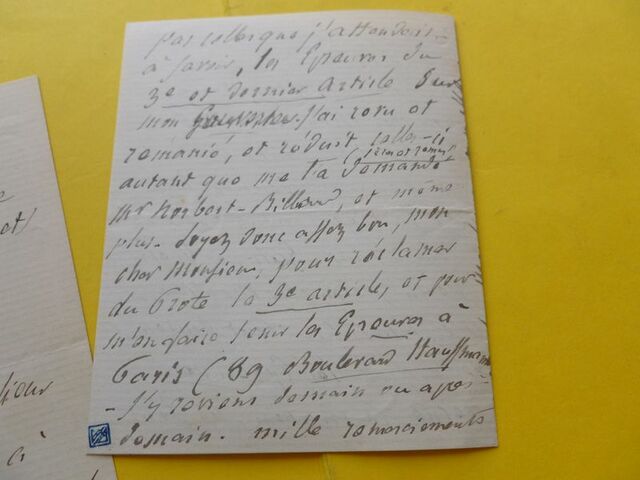 pas celles que j'attendais -
à savoir, les Epreuves du
3e et dernier article sur
mon J'ai revu et
remanié, et réduit celles-ci
autant que me l'a demandé
Mr Norbert-Billiard, et même
plus. Soyez donc assez bon, mon
cher Monsieur, pour réclamer
du Prote le 3e article, et pour
m'en faire tenir les Epreuves à
Paris (89 Boulevard Haussmann
- J'y reviens demain ou après-
demain. mille remerciements
et
à